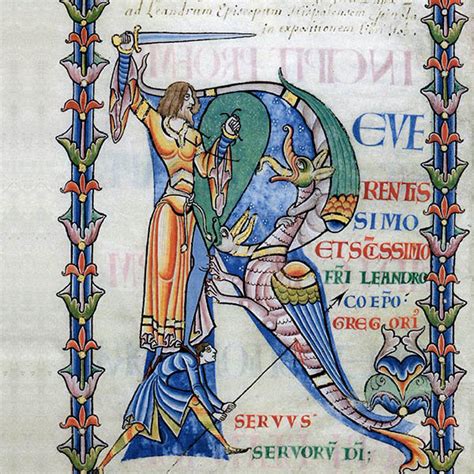 ad Leandrum Episcopum
in expositionem
R EVE
RENTIS
SIMO
ET SCĪSSIMO
FR̄I LEANDRO
CO EPŌ:
GREGORI'
SERVVS
SERVORV̄ DĪ: